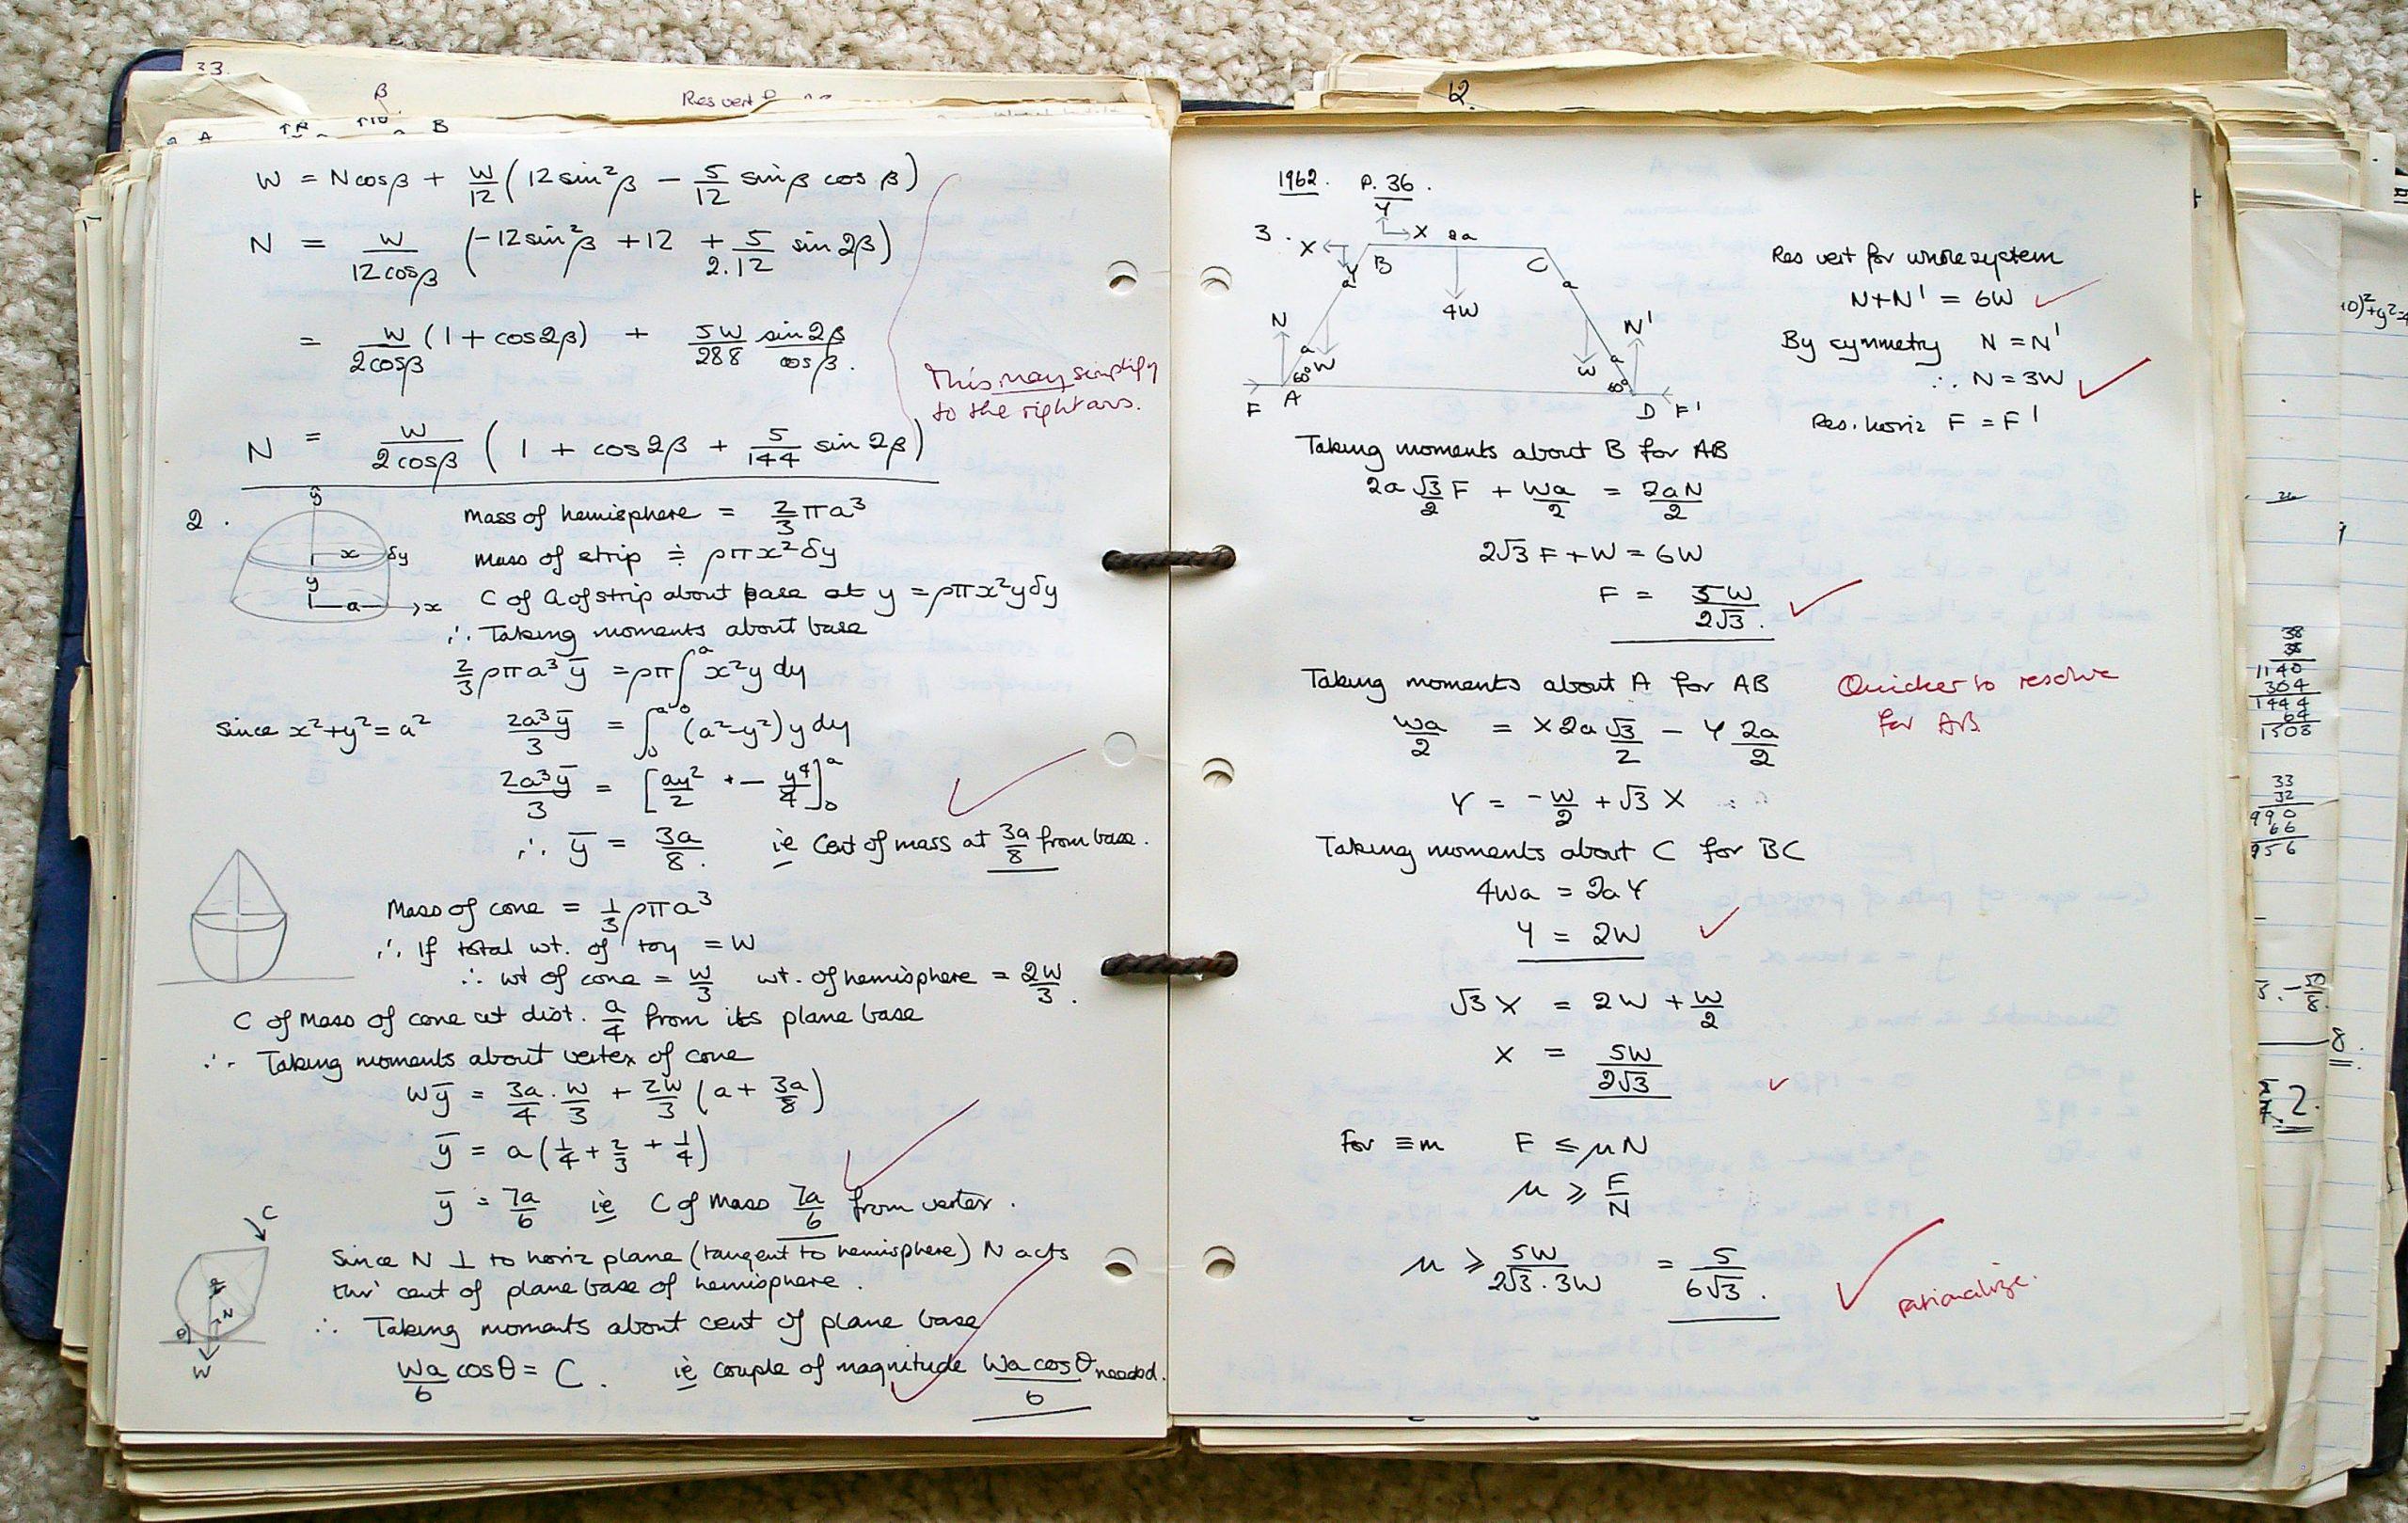 33.
β
Res vert
A
B
W = N cosβ + W/12 (12 sin²β − 5/12 sinβ cos β)
N = W/12cosβ (−12sin²β + 12 + 5/2.12 sin 2β)
= W/2cosβ (1 + cos2β) + 5W/288 sin2β/cosβ.
This may simplify
to the right ans.
N = W/2cosβ (1 + cos2β + 5/144 sin 2β)
2.
ŷ
x
δy
y
a
x
Mass of hemisphere = 2/3 πa³
Mass of strip ≑ ρπx²δy
C of G of strip about base at y = ρπx²yδy
∴ Taking moments about base
2/3 ρπa³ȳ = ρπ∫₀ᵃ x²y dy
Since x²+y² = a² 2a³ȳ/3 = ∫₀ᵃ (a²−y²) y dy
2a³ȳ/3 = [ay²/2 + − y⁴/4]₀ᵃ
∴ ȳ = 3a/8. ie Cent of mass at 3a/8 from base.
Mass of cone = 1/3 ρπa³
∴ If total wt. of toy = W
∴ wt of cone = W/3 wt. of hemisphere = 2W/3.
C of Mass of cone at dist. a/4 from its plane base
∴ Taking moments about vertex of cone
Wȳ = 3a/4 . W/3 + 2W/3 (a + 3a/8)
ȳ = a(1/4 + 2/3 + 1/4)
ȳ = 7a/6 ie C of Mass 7a/6 from vertex.
C
N
θ
W
Since N ⊥ to horiz plane (tangent to hemisphere) N acts
thr' cent of plane base of hemisphere.
∴ Taking moments about cent of plane base
Wa/6 cosθ = C. ie couple of magnitude Wa cosθ/6 needed.
62.
1962. P. 36.
3.
Y
X
X
2a
Y
B
C
a
a
4W
N
N'
a
W
W
a
60°
60°
F
A
D
F'
Res vert for whole system
N+N' = 6W
By symmetry N = N'
∴ N = 3W
Res. horiz F = F'
Taking moments about B for AB
2a √3/2 F + Wa/2 = 2aN/2
2√3 F + W = 6W
F = 5W/2√3.
Taking moments about A for AB
Quicker to resolve
for AB
Wa/2 = X 2a √3/2 − Y 2a/2
Y = −W/2 + √3 X
Taking moments about C for BC
4Wa = 2aY
Y = 2W
√3 X = 2W + W/2
X = 5W/2√3
For ≡m F ≤ μN
μ ≥ F/N
μ ≥ 5W/2√3.3W = 5/6√3.
rationalize.
38
38
1140
304
1444
64
1508
33
32
990
66
956
8.
2.